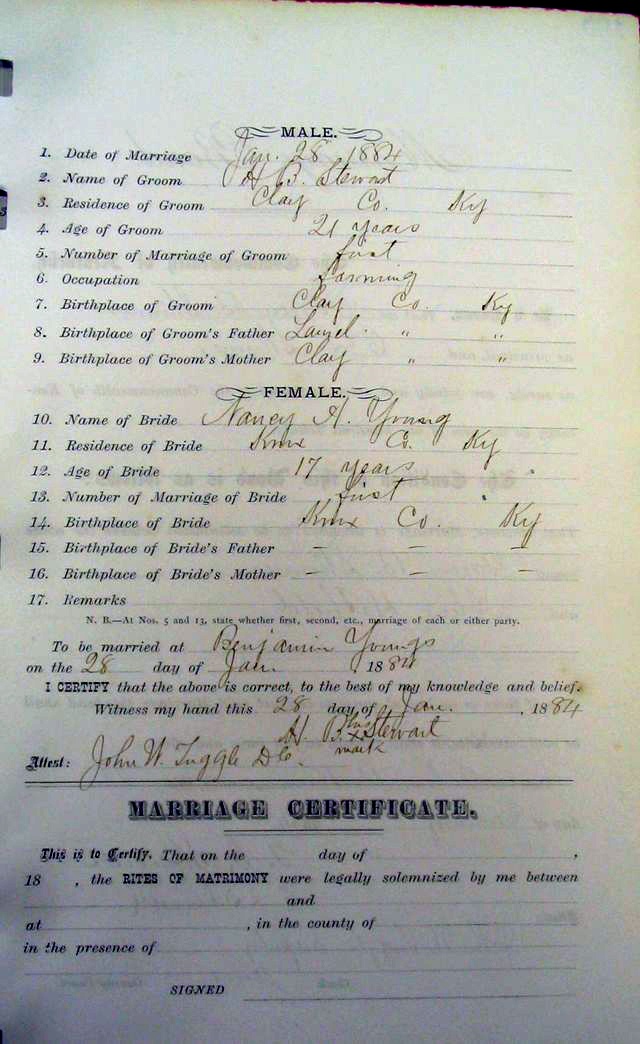 MALE.
1. Date of Marriage Jan. 28 1884
2. Name of Groom H B. Stewart
3. Residence of Groom Clay Co. Ky
4. Age of Groom 21 years
5. Number of Marriage of Groom first
6. Occupation farming
7. Birthplace of Groom Clay Co. Ky
8. Birthplace of Groom's Father Laurel. " "
9. Birthplace of Groom's Mother Clay " "
FEMALE.
10. Name of Bride Nancy A. Young
11. Residence of Bride Knox Co. Ky
12. Age of Bride 17 years
13. Number of Marriage of Bride first
14. Birthplace of Bride Knox Co. Ky
15. Birthplace of Bride's Father — — —
16. Birthplace of Bride's Mother — — —
17. Remarks
N. B.—At Nos. 5 and 13, state whether first, second, etc., marriage of each or either party.
To be married at Benjamin Youngs
on the 28 day of Jan. , 1884
I CERTIFY that the above is correct, to the best of my knowledge and belief.
Witness my hand this 28 day of Jan. , 1884
H. B. his x mark Stewart
Attest: John W. Tuggle D C.
MARRIAGE CERTIFICATE.
This is to Certify, That on the day of ,
18 , the RITES OF MATRIMONY were legally solemnized by me between
and
at , in the county of
in the presence of
SIGNED